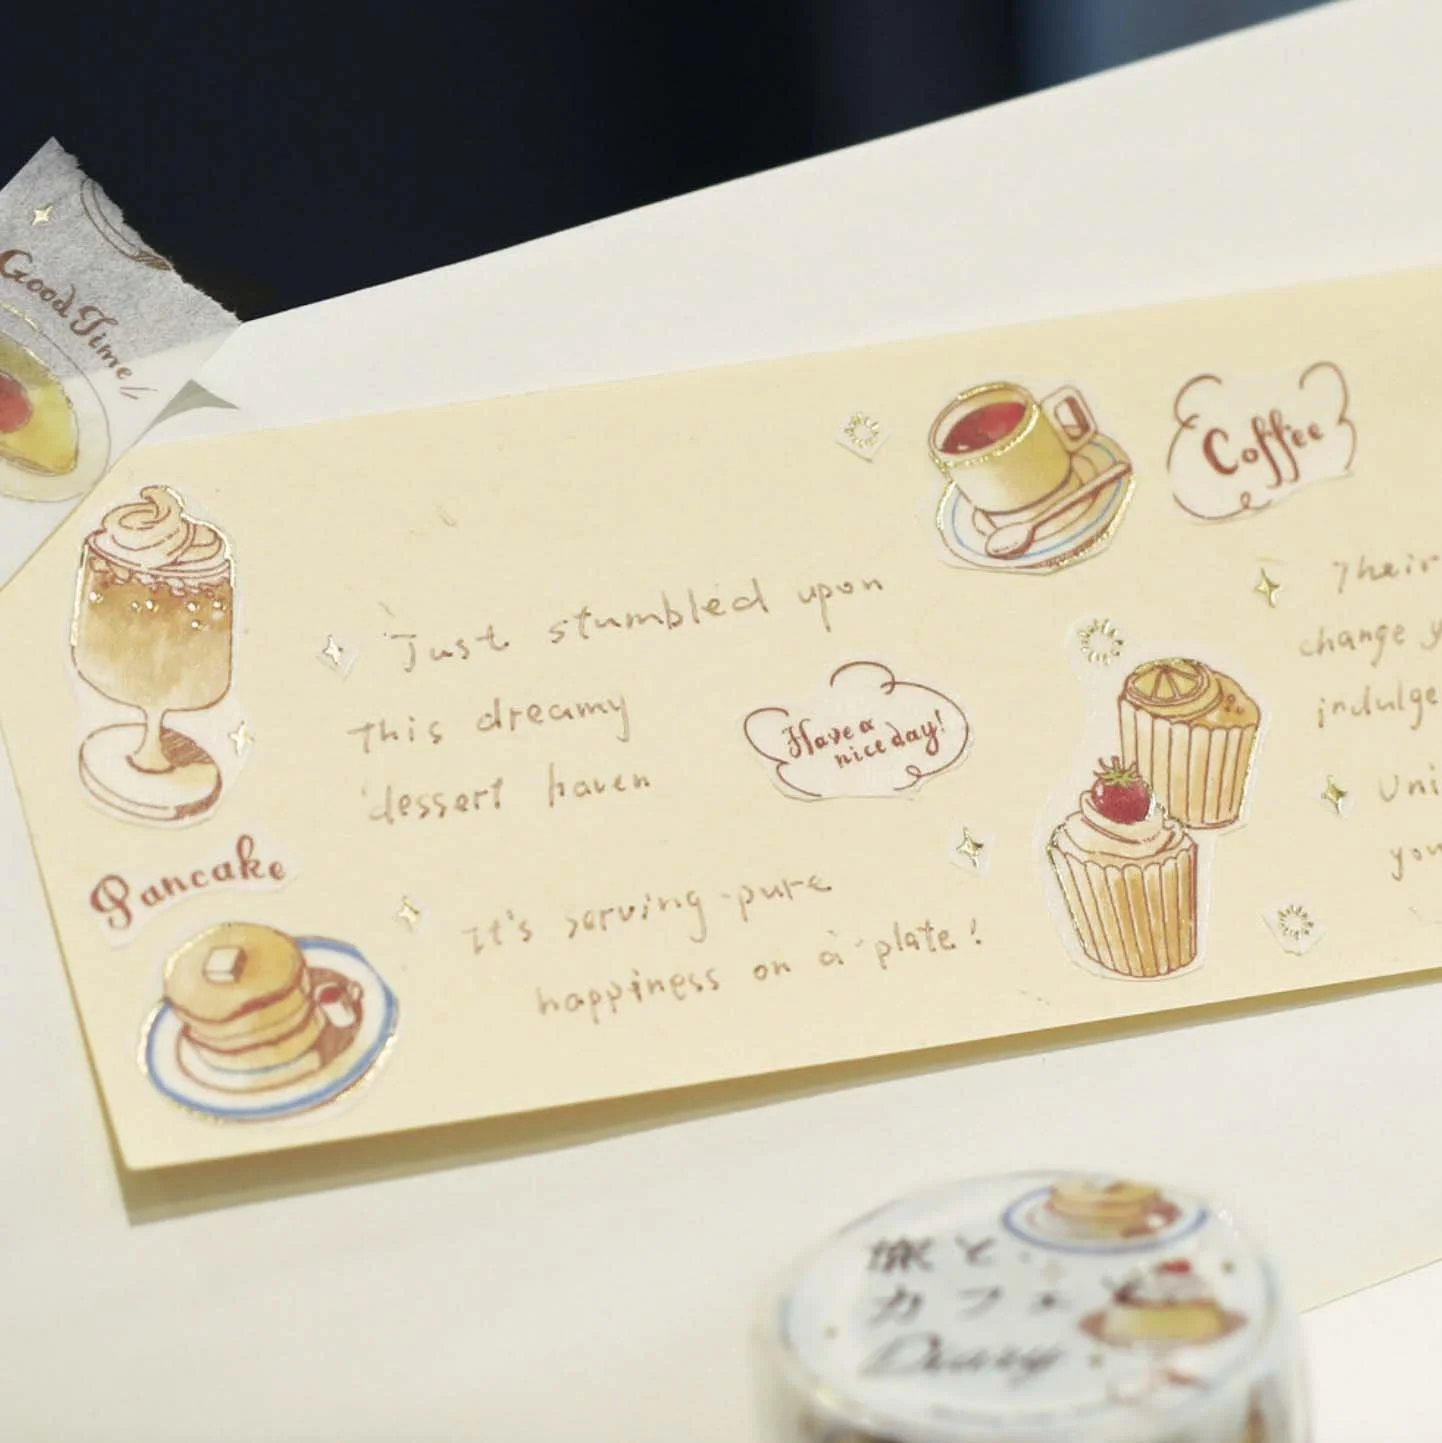 Good Time
Coffee
Just stumbled upon
This dreamy
dessert haven
Have a
nice day!
Pancake
It's serving pure
happiness on a plate!
Their
change
indulge
Uni
you
旅と
カフェ
Diary